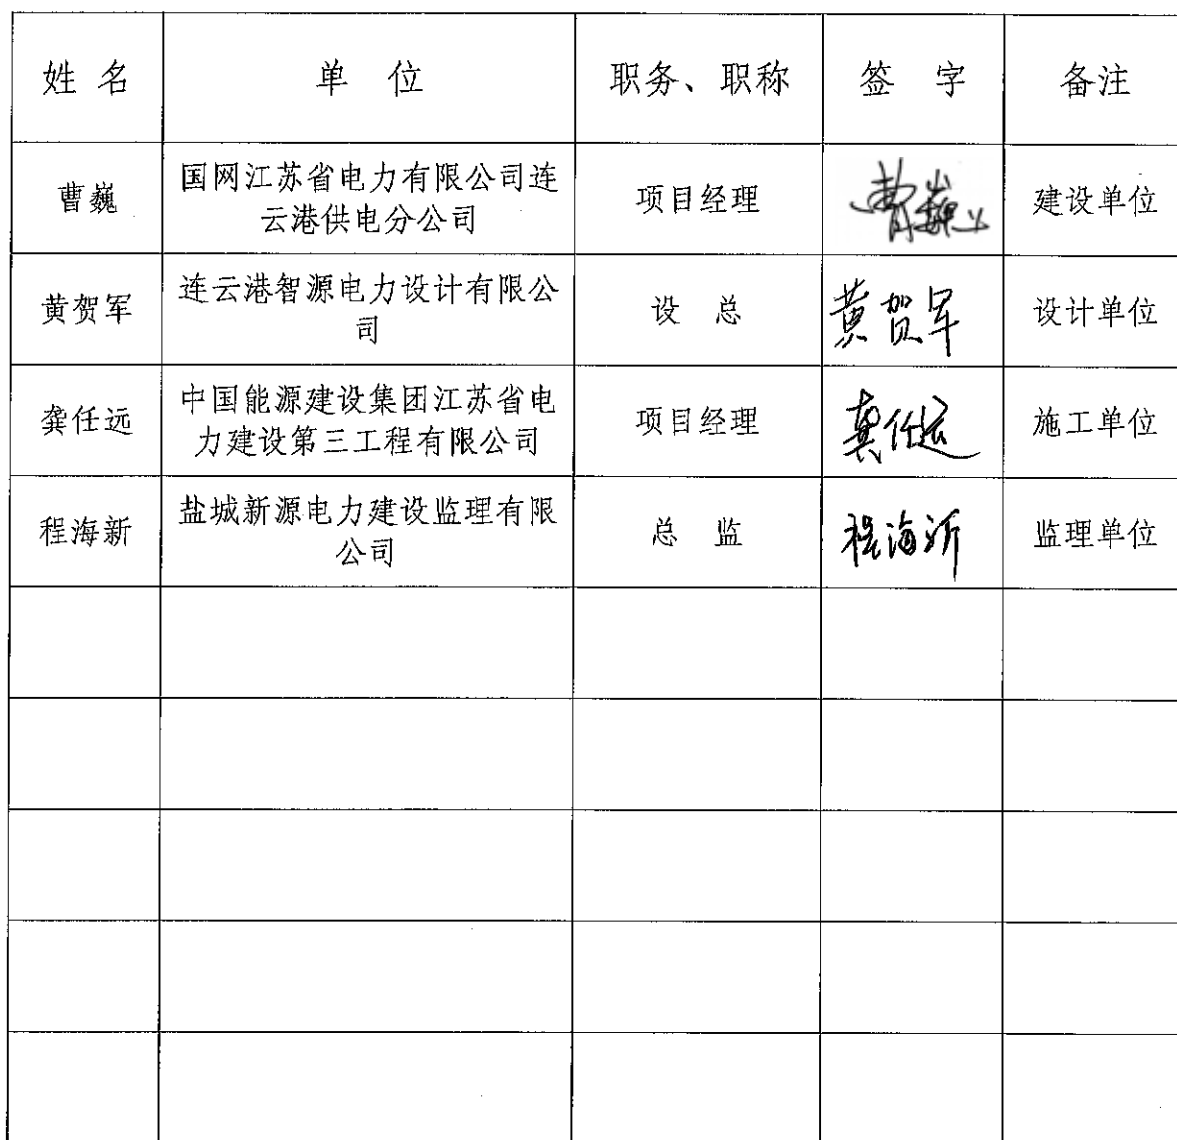 姓 名 单 位 职务、职称 签 字 备注
曹巍 国网江苏省电力有限公司连云港供电分公司 项目经理 曹巍 建设单位
黄贺军 连云港智源电力设计有限公司 设 总 黄贺军 设计单位
龚任远 中国能源建设集团江苏省电力建设第三工程有限公司 项目经理 龚任远 施工单位
程海新 盐城新源电力建设监理有限公司 总 监 程海新 监理单位